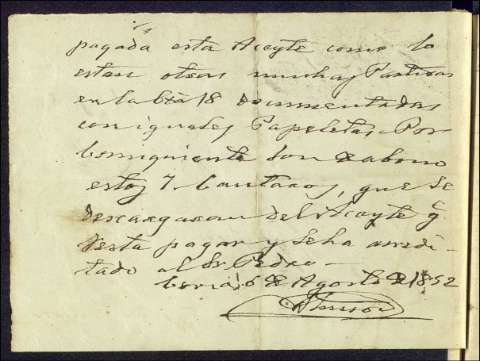 pagada esta Aceyte como lo
estan otras muchas Partidas
en la 18 documentadas
con iguales Papeletas. Por
consiguiente son de abono
estos 7 Cantaros, que se
descargaran del Aceyte q.
resta pagar y se ha acredi-
tado al Sr. Pedro
6 de Agosto de 1852